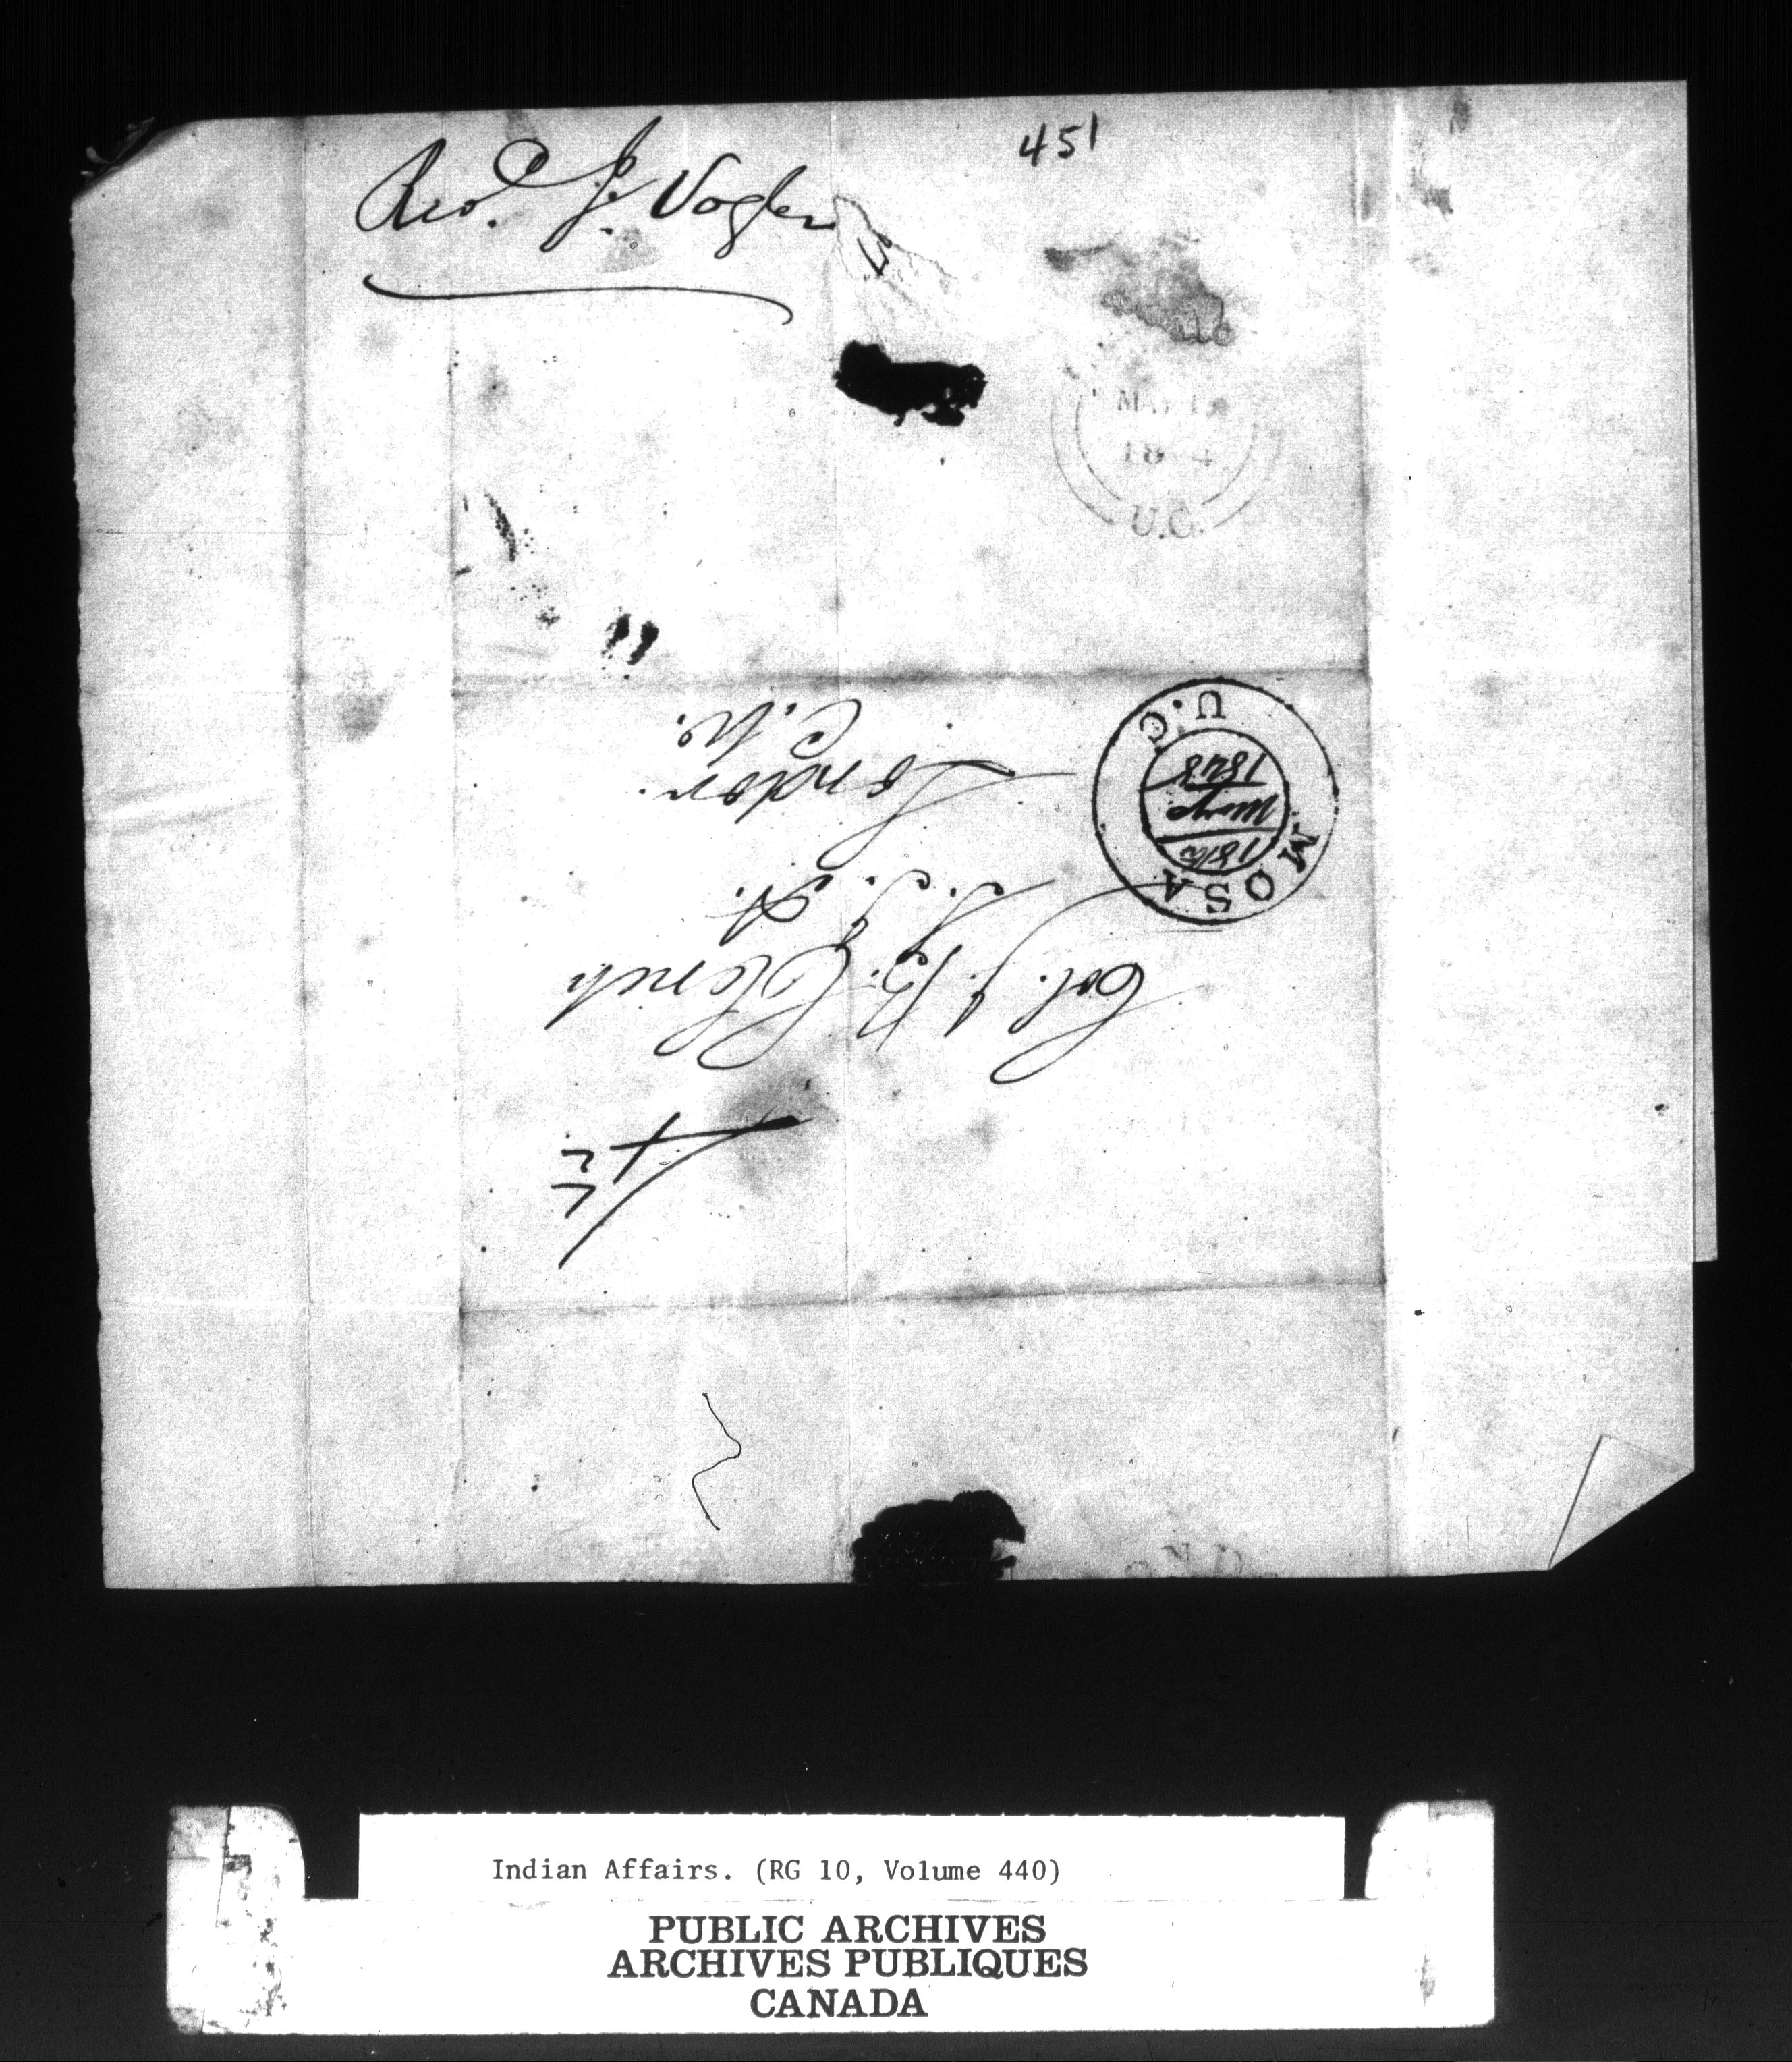 451
Rev.d J. Vogler
MAY
U.C.
MOSA U.C
18th
May
1848
Col. J. B. Clench
S. I. A.
London.
C.W.
Indian Affairs. (RG 10, Volume 440)
PUBLIC ARCHIVES
ARCHIVES PUBLIQUES
CANADA